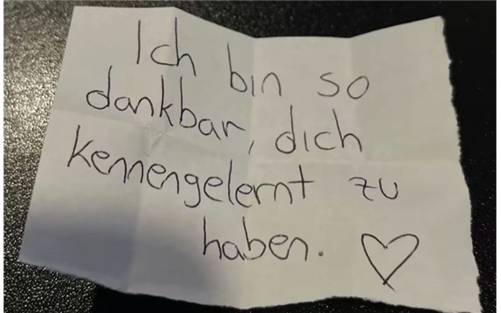 Ich bin so
dankbar, dich
kennengelernt zu
haben. ♡